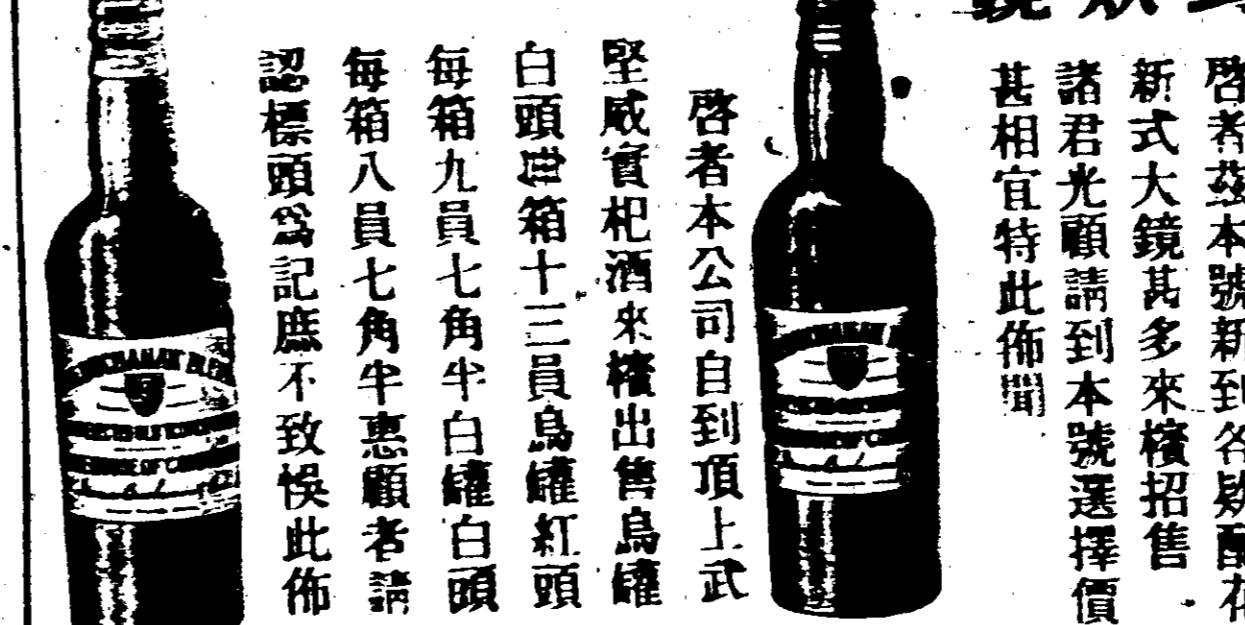 啓者茲本號新到各欵
新式大鏡甚多來檳招售
諸君光顧請到本號選擇價
甚相宜特此佈聞
啓者本公司自到頂上武
堅威實杞酒來檳出售烏罐
白頭每箱十三員烏罐紅頭
每箱九員七角半白罐白頭
每箱八員七角半惠顧者請
認標頭爲記庶不致悞此佈
BUCHANAN BLEND
HOUSE OF
BUCHANAN